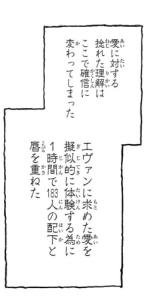 愛に対する
捻れた理解は
ここで確信に
変わってしまった
エヴァンに求めた愛を
擬似的に体験する為に
1時間で183人の配下と
唇を重ねた